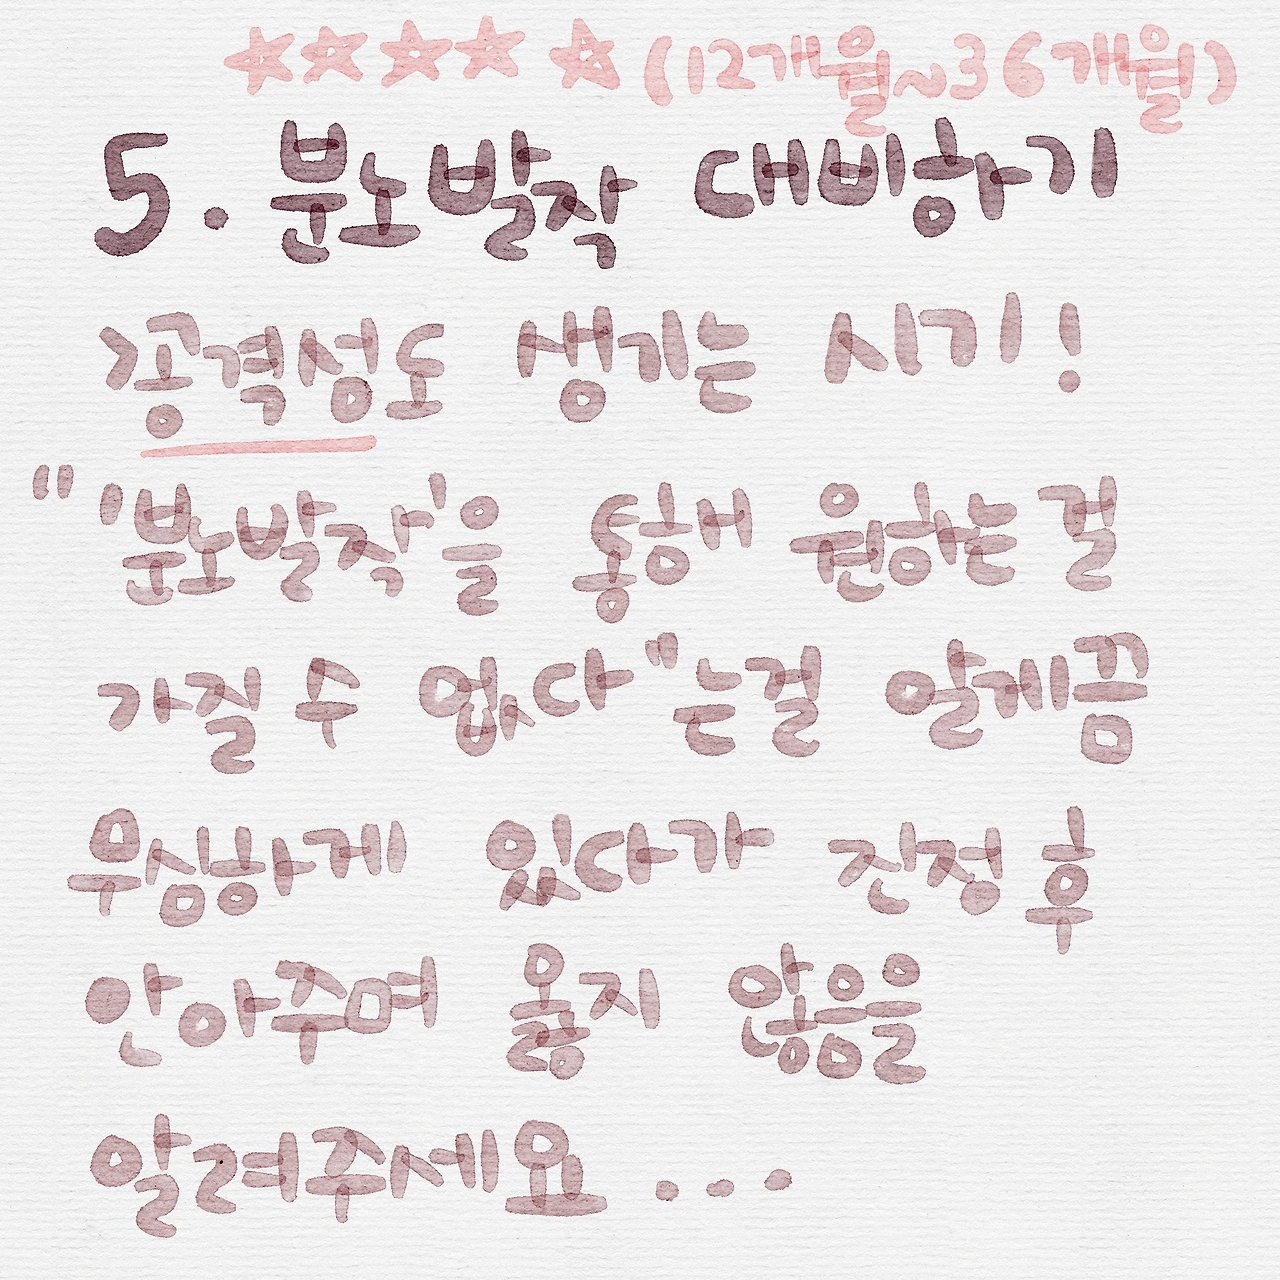 ☆☆☆☆ ☆(12개월~36개월)
5. 분노발작 대비하기
>공격성도 생기는 시기!
"'분노발작'을 통해 원하는 걸
가질 수 없다"는걸 알게끔
무심하게 있다가 진정 후
안아주며 옳지 않음을
알려주세요...